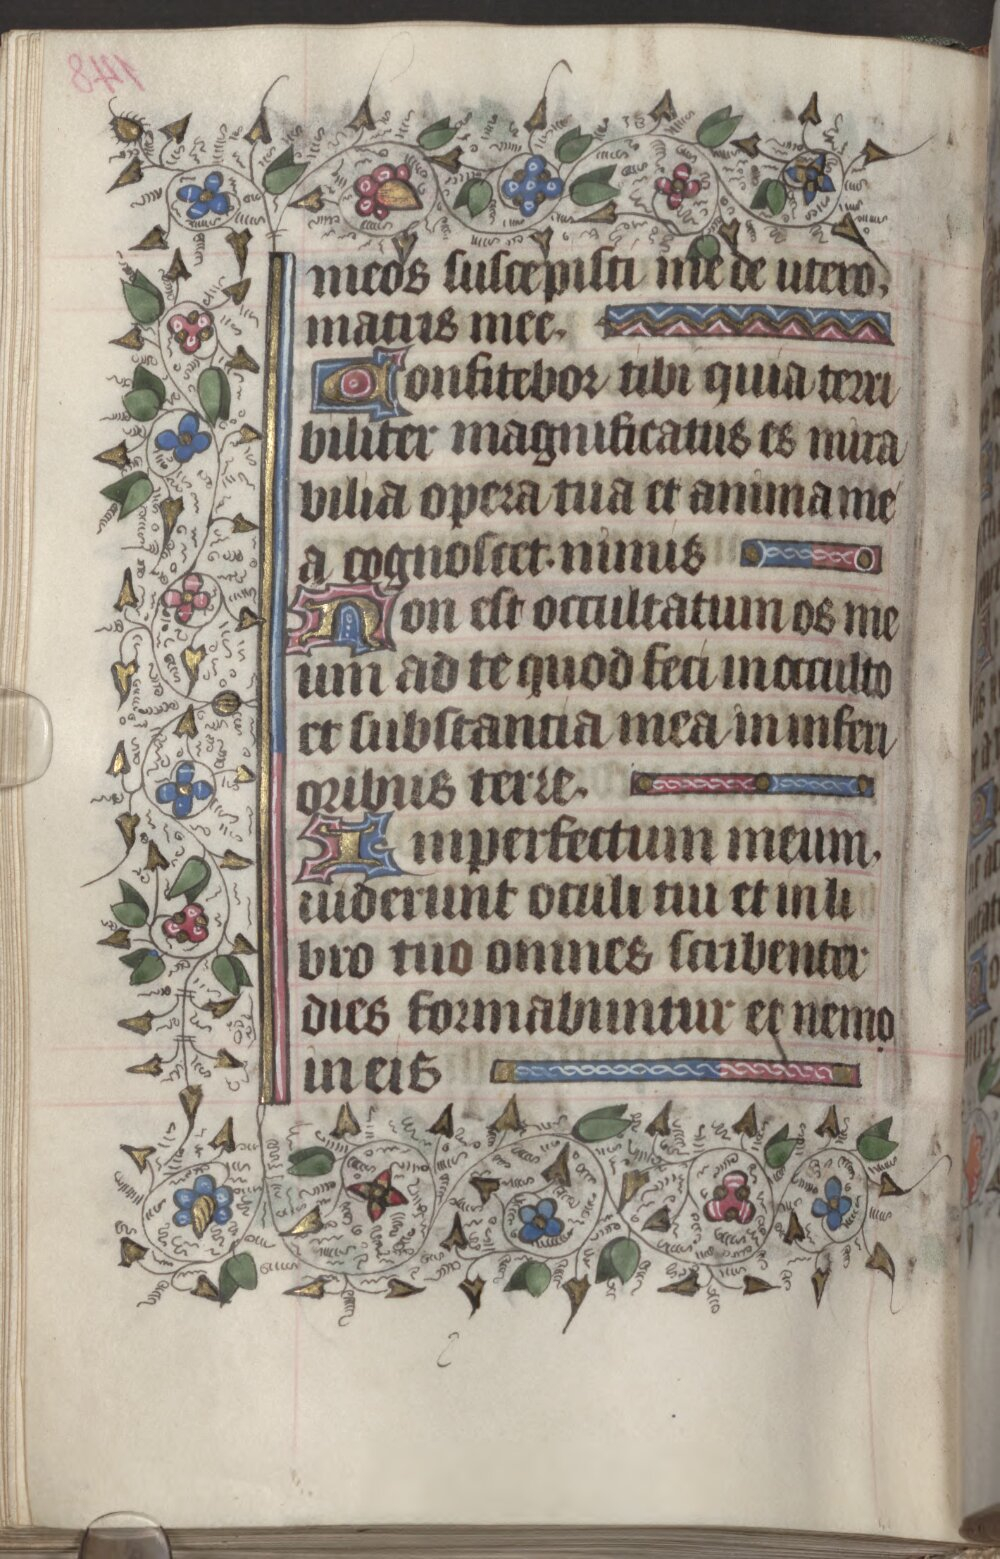 148
meos suscepisti me de utero.
matris mee.
Confitebor tibi quia terri
biliter magnificatus es mira
bilia opera tua et anima me
a cognoscet. nimis
Non est occultatum os me
um ad te quod feci in occulto
et substantia mea in inferi
oribus terre.
Inperfectum meum.
viderunt oculi tui et in li
bro tuo omnes scribentur
dies formabuntur et nemo
in eis